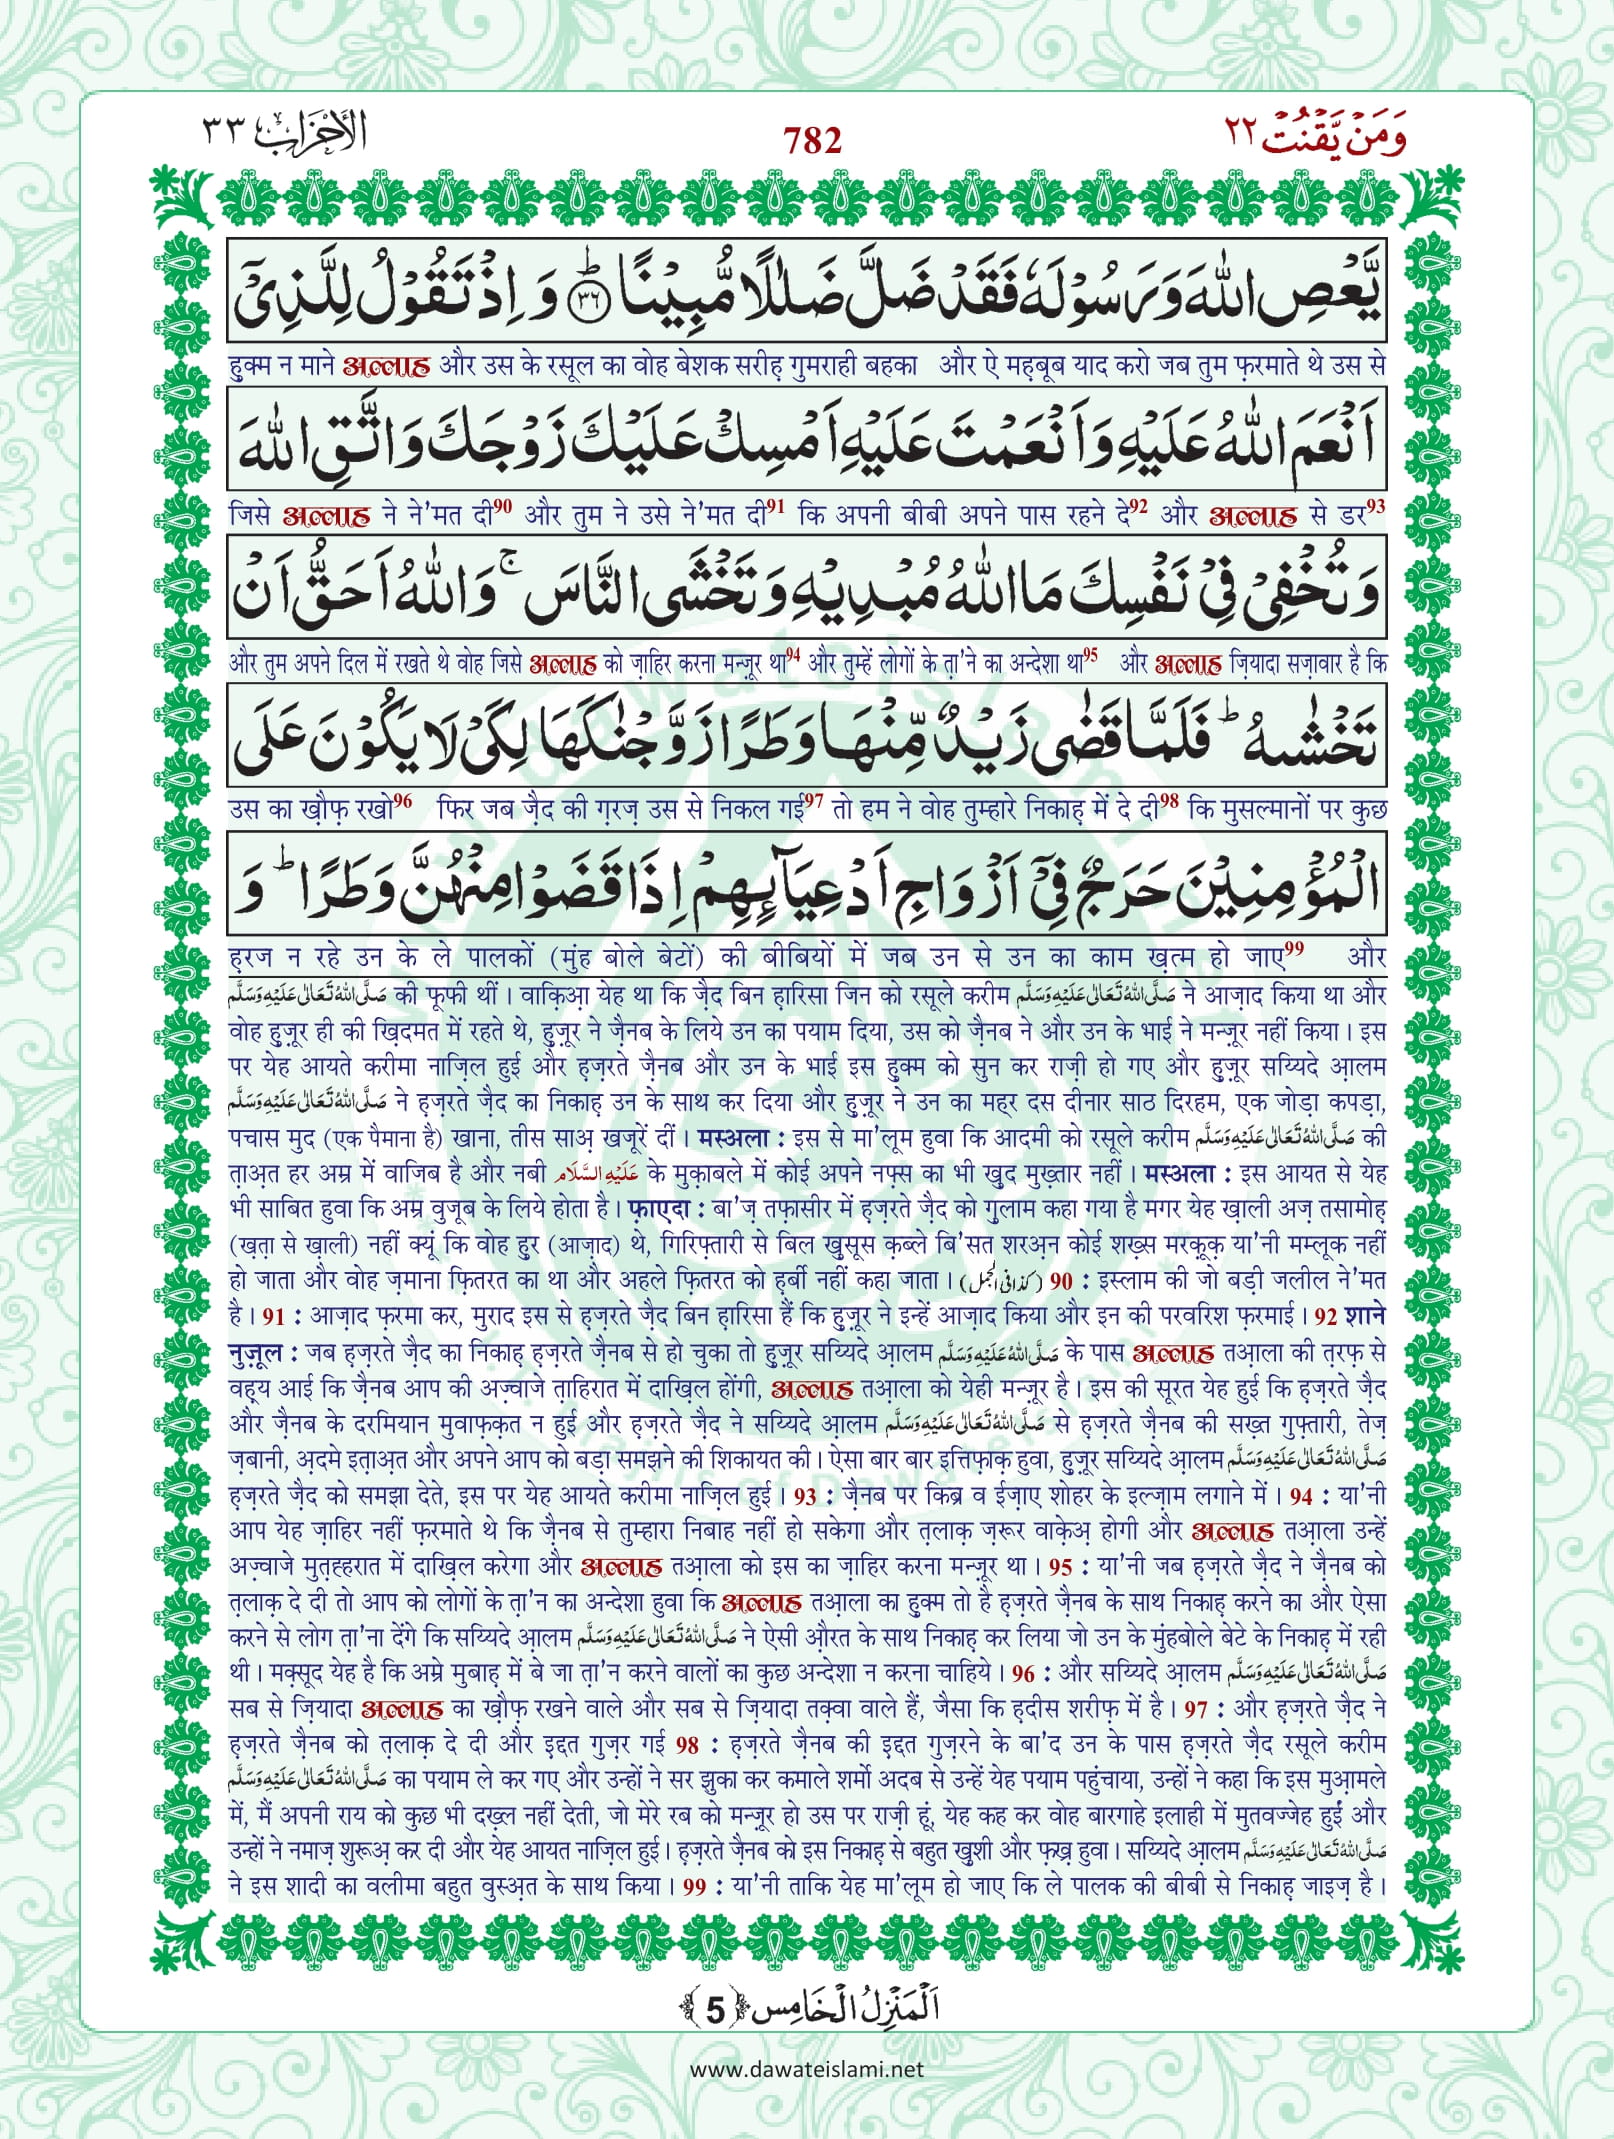 وَمَنْ يَّقْنُتْ ٢٢ 782 الْاَحْزَاب ٣٣
يَّعْصِ اللّٰهَ وَرَسُوْلَهٗ فَقَدْ ضَلَّ ضَلٰلًا مُّبِيْنًا ؕ﴿٣٦﴾ وَ اِذْ تَقُوْلُ لِلَّذِىْۤ
हुक्म न माने अल्लाह और उस के रसूल का वोह बेशक सरीह़ गुमराही बहका और ऐ मह़बूब याद करो जब तुम फ़रमाते थे उस से
اَنْعَمَ اللّٰهُ عَلَيْهِ وَاَنْعَمْتَ عَلَيْهِ اَمْسِكْ عَلَيْكَ زَوْجَكَ وَاتَّقِ اللّٰهَ
जिसे अल्लाह ने ने'मत दी90 और तुम ने उसे ने'मत दी91 कि अपनी बीबी अपने पास रहने दे92 और अल्लाह से डर93
وَتُخْفِىْ فِىْ نَفْسِكَ مَا اللّٰهُ مُبْدِيْهِ وَتَخْشَى النَّاسَ ۚ وَاللّٰهُ اَحَقُّ اَنْ
और तुम अपने दिल में रखते थे वोह जिसे अल्लाह को ज़ाहिर करना मन्ज़ूर था94 और तुम्हें लोगों के त़ा'ने का अन्देशा था95 और अल्लाह ज़ियादा सज़ावार है कि
تَخْشٰىهُ ؕ فَلَمَّا قَضٰى زَيْدٌ مِّنْهَا وَطَرًا زَوَّجْنٰكَهَا لِكَىْ لَا يَكُوْنَ عَلَى
उस का ख़ौफ़ रखो96 फिर जब ज़ैद की ग़रज़ उस से निकल गई97 तो हम ने वोह तुम्हारे निकाह़ में दे दी98 कि मुसल्मानों पर कुछ
الْمُؤْمِنِيْنَ حَرَجٌ فِىْۤ اَزْوَاجِ اَدْعِيَآىِٕهِمْ اِذَا قَضَوْا مِنْهُنَّ وَطَرًا ؕ وَ
ह़रज न रहे उन के ले पालकों (मुंह बोले बेटों) की बीबियों में जब उन से उन का काम ख़त्म हो जाए99 और
صَلَّى اللّٰهُ تَعَالٰى عَلَيْهِ وَسَلَّم की फूफी थीं। वाक़िआ़ येह था कि ज़ैद बिन ह़ारिसा जिन को रसूले करीम صَلَّى اللّٰهُ تَعَالٰى عَلَيْهِ وَسَلَّم ने आज़ाद किया था और
वोह हुज़ूर ही की ख़िदमत में रहते थे, हुज़ूर ने ज़ैनब के लिये उन का पयाम दिया, उस को ज़ैनब ने और उन के भाई ने मन्ज़ूर नहीं किया। इस
पर येह आयते करीमा नाज़िल हुई और ह़ज़रते ज़ैनब और उन के भाई इस हुक्म को सुन कर राज़ी हो गए और हुज़ूर सय्यिदे आ़लम
صَلَّى اللّٰهُ تَعَالٰى عَلَيْهِ وَسَلَّم ने ह़ज़रते ज़ैद का निकाह़ उन के साथ कर दिया और हुज़ूर ने उन का महर दस दीनार साठ दिरहम, एक जोड़ा कपड़ा,
पचास मुद (एक पैमाना है) खाना, तीस साअ़ खजूरें दीं। मस्अला : इस से मा'लूम हुवा कि आदमी को रसूले करीम صَلَّى اللّٰهُ تَعَالٰى عَلَيْهِ وَسَلَّم की
त़ाअ़त हर अम्र में वाजिब है और नबी عَلَيْهِ السَّلَام के मुक़ाबले में कोई अपने नफ़्स का भी ख़ुद मुख़्तार नहीं। मस्अला : इस आयत से येह
भी साबित हुवा कि अम्र वुजूब के लिये होता है। फ़ाएदा : बा'ज़ तफ़ासीर में ह़ज़रते ज़ैद को ग़ुलाम कहा गया है मगर येह ख़ाली अज़ तसामोह़
(ख़त़ा से ख़ाली) नहीं क्यूं कि वोह ह़ुर (आज़ाद) थे, गिरिफ़्तारी से बिल ख़ुसूस क़ब्ले बि'सत शरअ़न कोई शख़्स मरक़ूक़ या'नी मम्लूक नहीं
हो जाता और वोह ज़माना फ़ित़रत का था और अहले फ़ित़रत को ह़र्बी नहीं कहा जाता। (کذا فی الجمل) 90 : इस्लाम की जो बड़ी जलील ने'मत
है। 91 : आज़ाद फ़रमा कर, मुराद इस से ह़ज़रते ज़ैद बिन ह़ारिसा हैं कि हुज़ूर ने इन्हें आज़ाद किया और इन की परवरिश फ़रमाई। 92 शाने
नुज़ूल : जब ह़ज़रते ज़ैद का निकाह़ ह़ज़रते ज़ैनब से हो चुका तो हुज़ूर सय्यिदे आ़लम صَلَّى اللّٰهُ عَلَيْهِ وَسَلَّم के पास अल्लाह तआ़ला की त़रफ़ से
वह़्य आई कि ज़ैनब आप की अज़्वाजे त़ाहिरात में दाख़िल होंगी, अल्लाह तआ़ला को येही मन्ज़ूर है। इस की सूरत येह हुई कि ह़ज़रते ज़ैद
और ज़ैनब के दरमियान मुवाफ़क़त न हुई और ह़ज़रते ज़ैद ने सय्यिदे आ़लम صَلَّى اللّٰهُ تَعَالٰى عَلَيْهِ وَسَلَّم से ह़ज़रते ज़ैनब की सख़्त गुफ़्तारी, तेज़
ज़बानी, अ़दमे इत़ाअ़त और अपने आप को बड़ा समझने की शिकायत की। ऐसा बार बार इत्तिफ़ाक़ हुवा, हुज़ूर सय्यिदे आ़लम صَلَّى اللّٰهُ تَعَالٰى عَلَيْهِ وَسَلَّم
ह़ज़रते ज़ैद को समझा देते, इस पर येह आयते करीमा नाज़िल हुई। 93 : ज़ैनब पर किब्र व ईज़ाए शोहर के इल्ज़ाम लगाने में। 94 : या'नी
आप येह ज़ाहिर नहीं फ़रमाते थे कि ज़ैनब से तुम्हारा निबाह नहीं हो सकेगा और त़लाक़ ज़रूर वाक़ेअ़ होगी और अल्लाह तआ़ला उन्हें
अज़्वाजे मुत़ह्हरात में दाख़िल करेगा और अल्लाह तआ़ला को इस का ज़ाहिर करना मन्ज़ूर था। 95 : या'नी जब ह़ज़रते ज़ैद ने ज़ैनब को
त़लाक़ दे दी तो आप को लोगों के त़ा'न का अन्देशा हुवा कि अल्लाह तआ़ला का हुक्म तो है ह़ज़रते ज़ैनब के साथ निकाह़ करने का और ऐसा
करने से लोग त़ा'ना देंगे कि सय्यिदे आ़लम صَلَّى اللّٰهُ تَعَالٰى عَلَيْهِ وَسَلَّم ने ऐसी औ़रत के साथ निकाह़ कर लिया जो उन के मुंहबोले बेटे के निकाह़ में रही
थी। मक़्सूद येह है कि अम्रे मुबाह़ में बे जा त़ा'न करने वालों का कुछ अन्देशा न करना चाहिये। 96 : और सय्यिदे आ़लम صَلَّى اللّٰهُ تَعَالٰى عَلَيْهِ وَسَلَّم
सब से ज़ियादा अल्लाह का ख़ौफ़ रखने वाले और सब से ज़ियादा तक़्वा वाले हैं, जैसा कि ह़दीस शरीफ़ में है। 97 : और ह़ज़रते ज़ैद ने
ह़ज़रते ज़ैनब को त़लाक़ दे दी और इ़द्दत गुज़र गई 98 : ह़ज़रते ज़ैनब की इ़द्दत गुज़रने के बा'द उन के पास ह़ज़रते ज़ैद रसूले करीम
صَلَّى اللّٰهُ تَعَالٰى عَلَيْهِ وَسَلَّم का पयाम ले कर गए और उन्हों ने सर झुका कर कमाले शर्मो अदब से उन्हें येह पयाम पहुंचाया, उन्हों ने कहा कि इस मुआ़मले
में, मैं अपनी राय को कुछ भी दख़्ल नहीं देती, जो मेरे रब को मन्ज़ूर हो उस पर राज़ी हूं, येह कह कर वोह बारगाहे इलाही में मुतवज्जेह हुईं और
उन्हों ने नमाज़ शुरूअ़ कर दी और येह आयत नाज़िल हुई। ह़ज़रते ज़ैनब को इस निकाह़ से बहुत ख़ुशी और फ़ख़्र हुवा। सय्यिदे आ़लम صَلَّى اللّٰهُ تَعَالٰى عَلَيْهِ وَسَلَّم
ने इस शादी का वलीमा बहुत वुस्अ़त के साथ किया। 99 : या'नी ताकि येह मा'लूम हो जाए कि ले पालक की बीबी से निकाह़ जाइज़ है।
اَلْمَنْزِلُ الْخَامِس ﴿5﴾
www.dawateislami.net